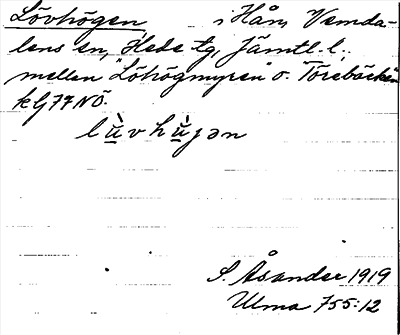 Lövhögen i Hån, Vemda-
lens sn, Hede tg, Jämtl. l.;
mellan "Löhögmyren" o. Torebäcken
kG77NÖ.
lù̲vhù̲jən
S. Åsander 1919
Ulma 755:12